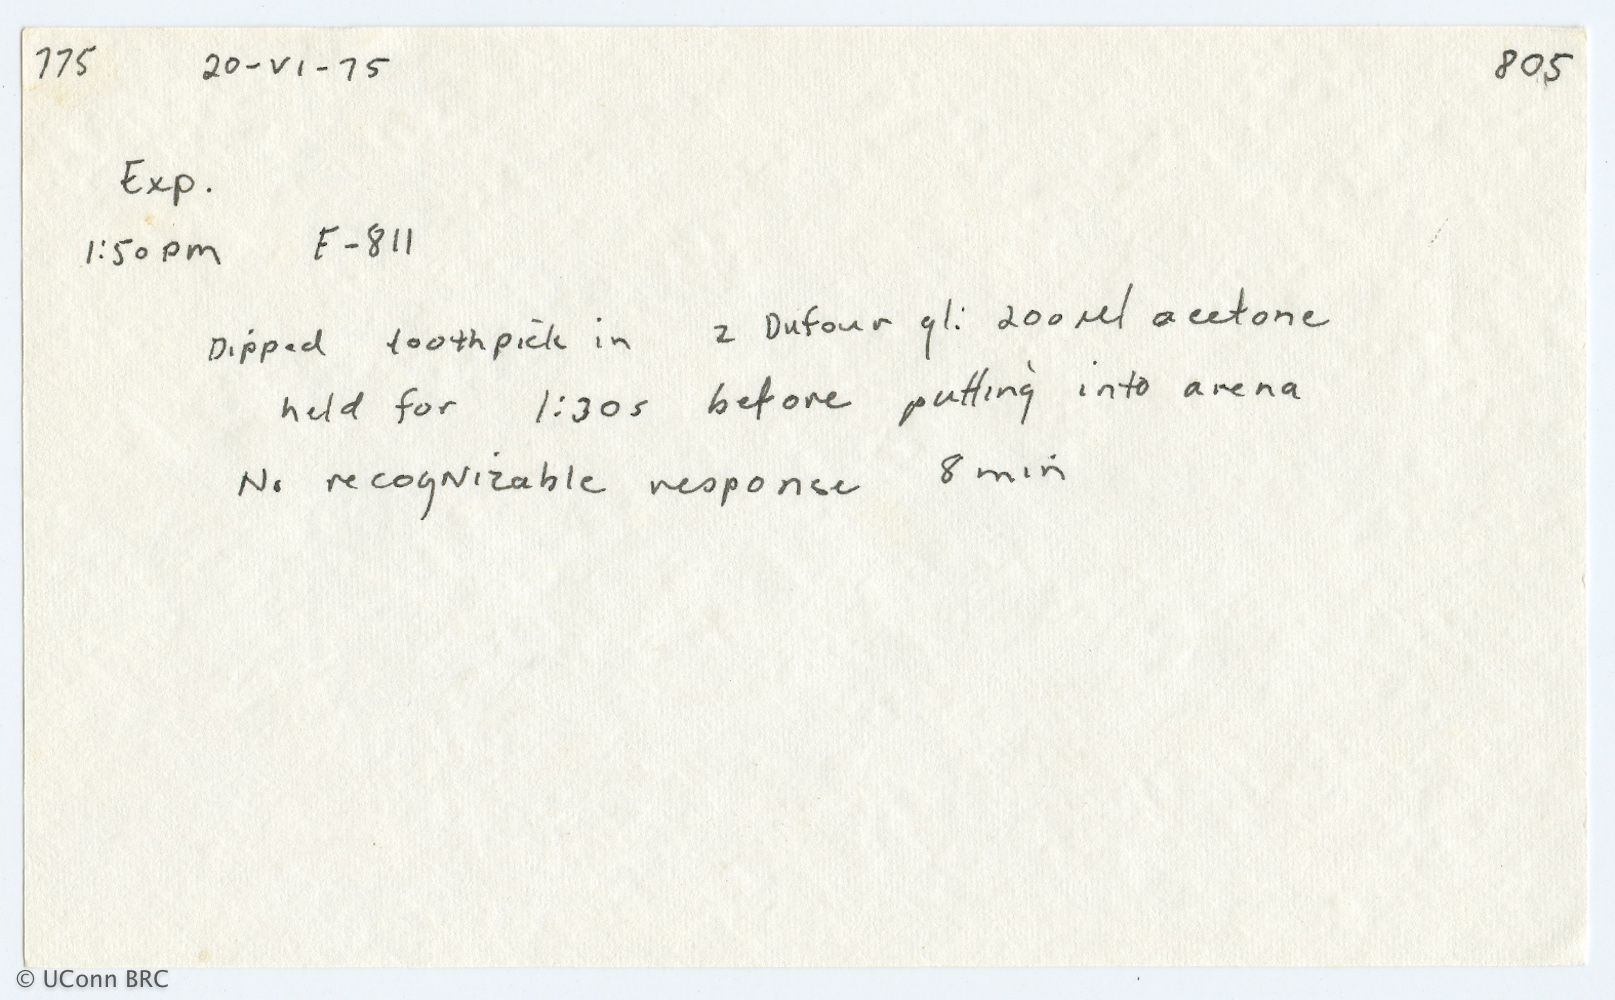 775 20-VI-75 805
Exp.
1:50 pm E-811
Dipped toothpick in 2 Dufour gl: 200 µl acetone
held for 1:30s before putting into arena
No recognizable response 8 min
© UConn BRC